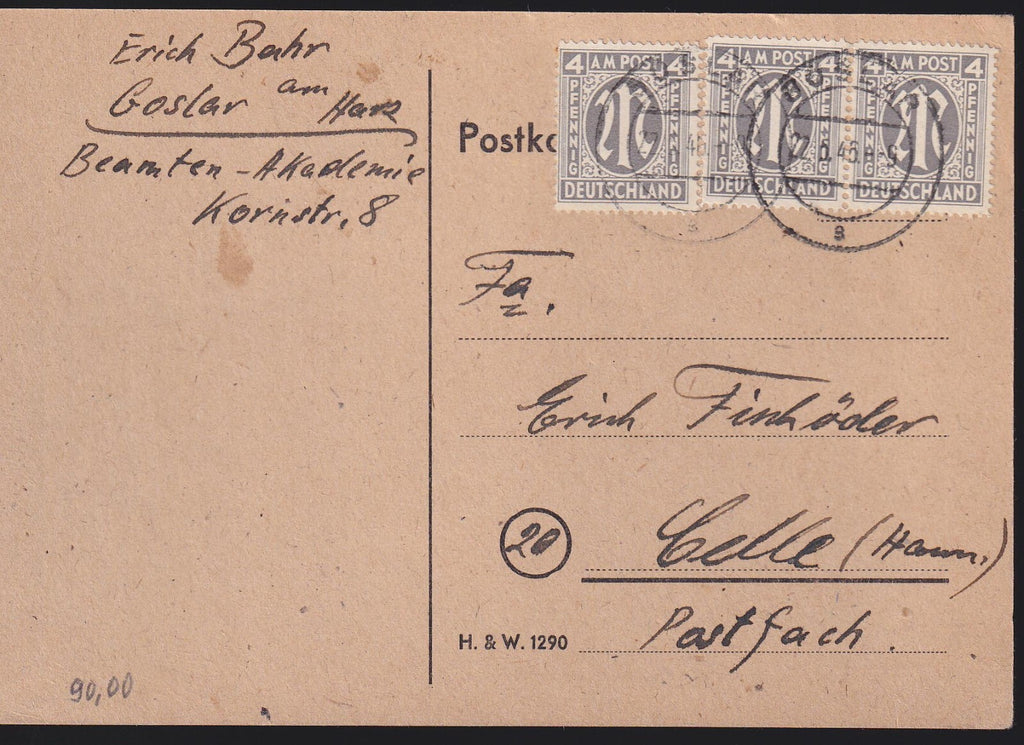 Erich Bahr
Goslar am Harz
Beamten-Akademie
Kornstr. 8
90,00
4 AM POST 4
PFENNIG PFENNIG
DEUTSCHLAND
4 AM POST 4
PFENNIG PFENNIG
DEUTSCHLAND
4 AM POST 4
PFENNIG PFENNIG
DEUTSCHLAND
a
a
Postka
Fa.
Erich Finhöder
20
Celle (Hann.)
Postfach.
H. & W. 1290